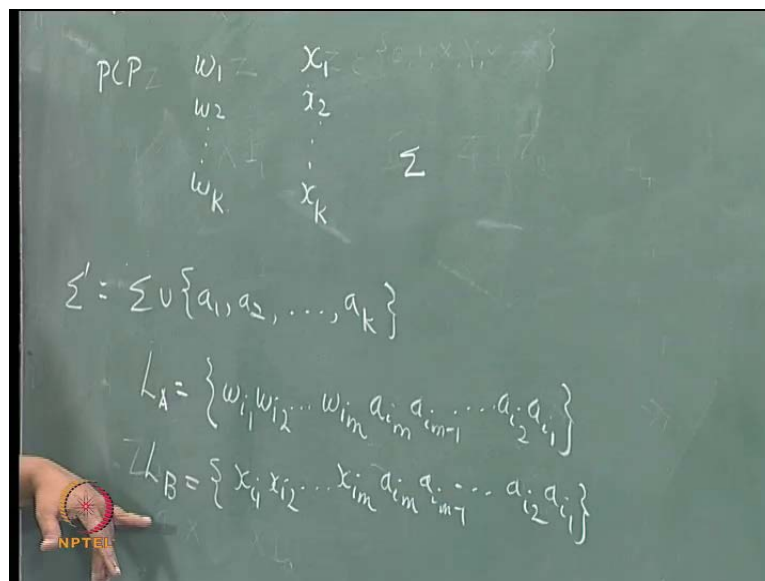 PCP w₁ x₁
w₂ x₂
⋮ ⋮ Σ
w_k x_k
Σ' = Σ ∪ {a₁, a₂, ..., a_k}
L_A = {w_{i₁} w_{i₂} ... w_{i_m} a_{i_m} a_{i_{m-1}} ... a_{i₂} a_{i₁}}
L_B = {x_{i₁} x_{i₂} ... x_{i_m} a_{i_m} a_{i_{m-1}} ... a_{i₂} a_{i₁}}
NPTEL